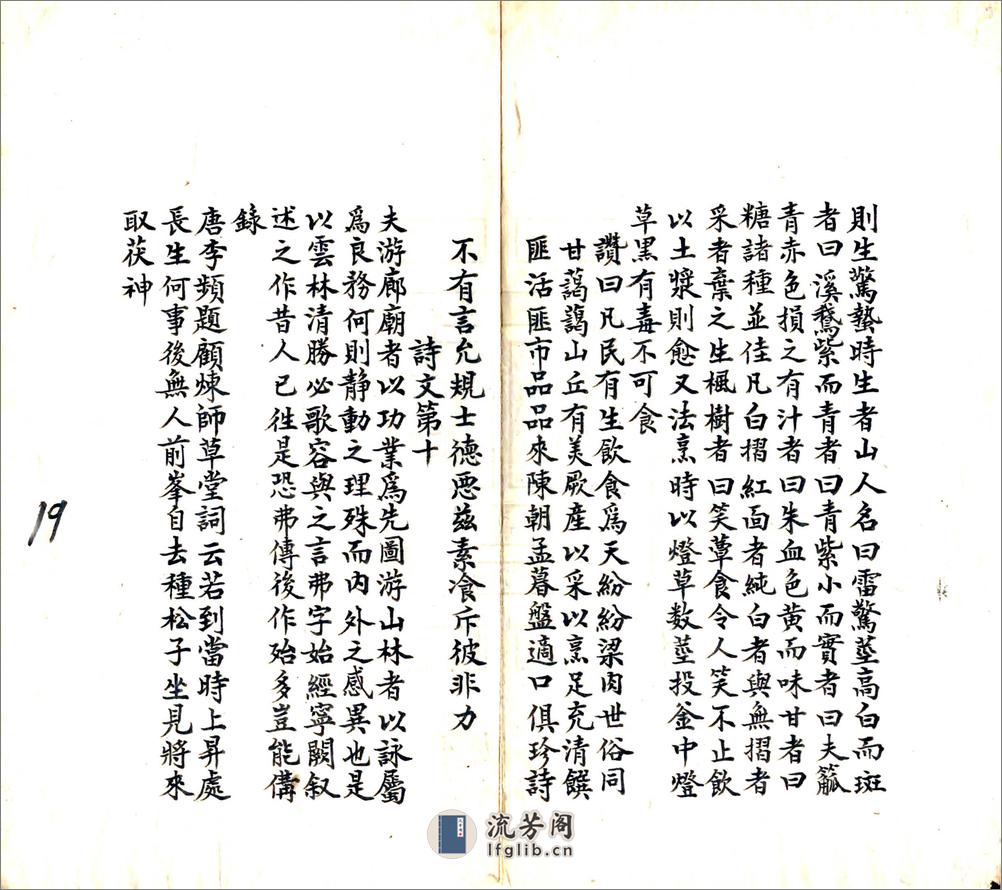 則生驚蟄時生者山人名曰雷驚莖高白而斑
者曰溪鵝紫而青者曰青紫小而實者曰夫
青赤色損之有汁者曰朱血色黄而味甘者曰
糖諸種並佳凡白摺紅面者純白者與無摺者
采者棄之生楓樹者曰笑蕈食令人笑不止飲
以土漿則愈又法烹時以燈草数莖投釜中燈
草黑有毒不可食
讚曰凡民有生飲食爲天紛紛梁肉世俗同
甘藹藹山丘有美厥産以采以烹足充清饌
匪活匪市品品來陳朝盂暮盤適口俱珍詩
不有言允規士德恧兹素飡斥彼非力
詩文第十
夫游廊廟者以功業爲先圖游山林者以詠屬
爲良務何則静動之理殊而内外之感異也是
以雲林清勝必歌容與之言弗字始經寧闕叙
述之作昔人已徃是恐弗傳後作殆多豈能僃
錄
唐李頻題顧煉師草堂詞云若到當時上昇處
長生何事後無人前峯自去種松子坐見將來
取茯神
19
流芳阁
lfglib.cn